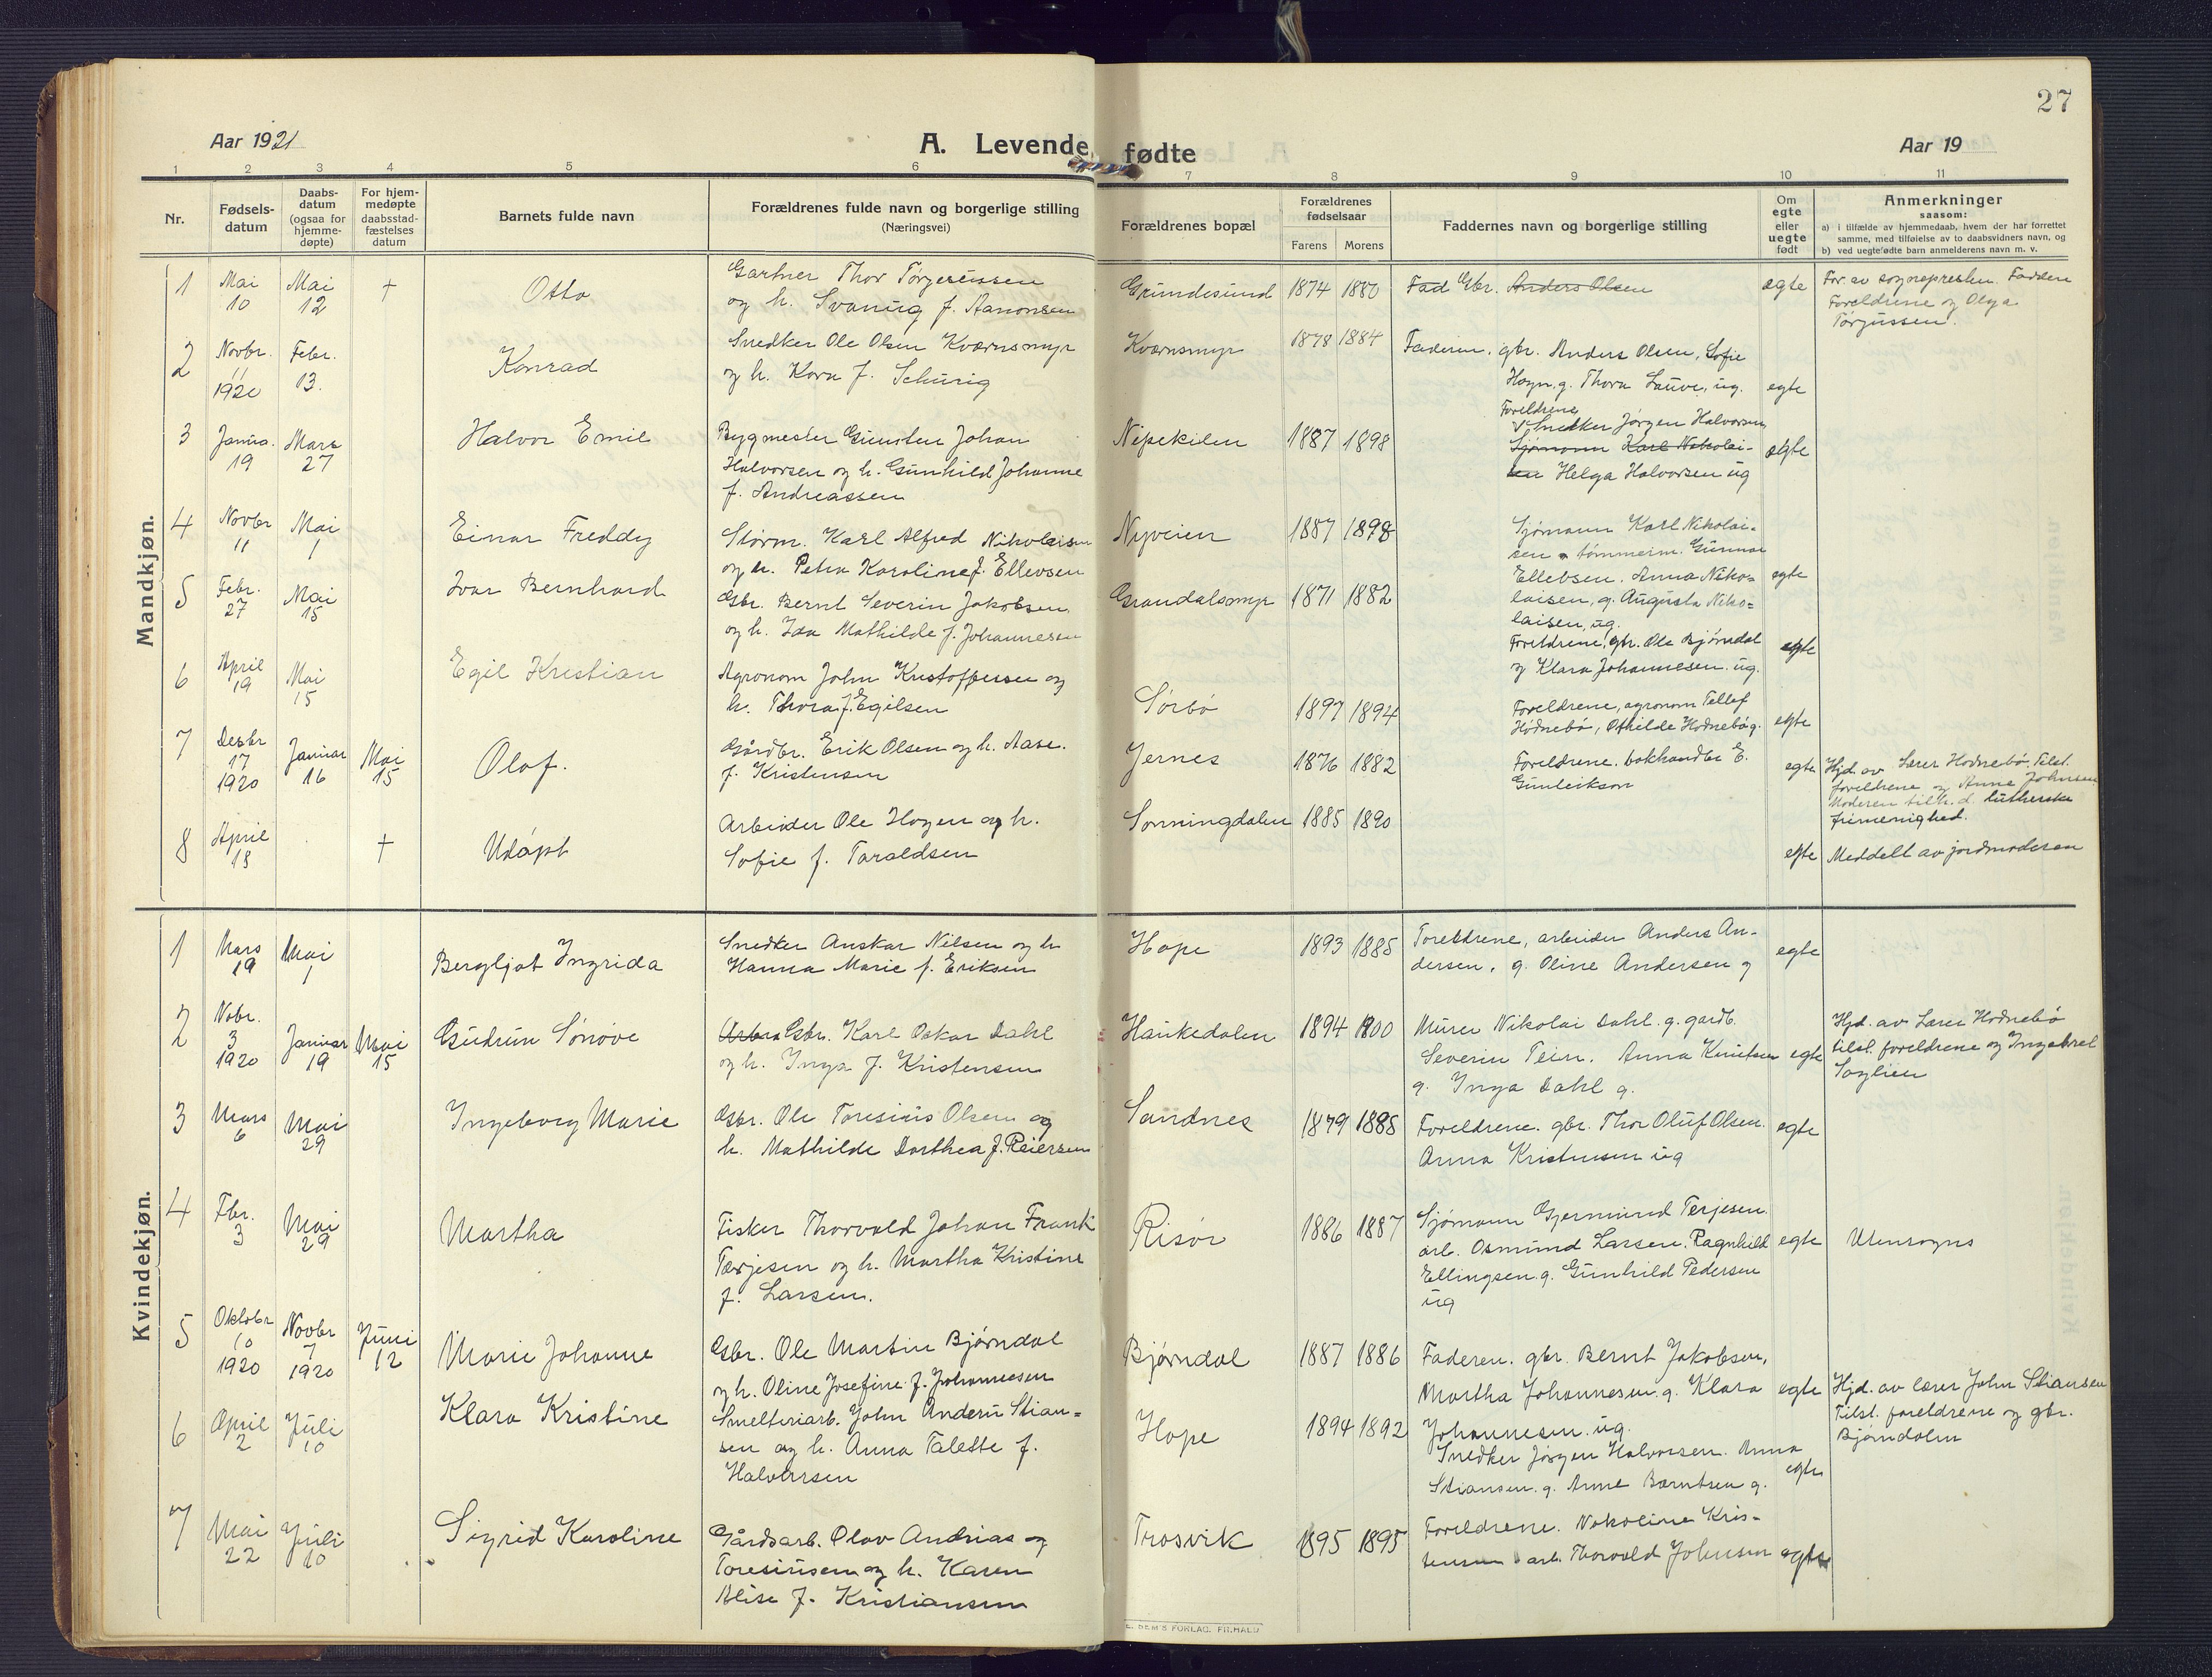 27
Aar 1921
A. Levende fødte
Aar 19
1 2 3 4 5 6 7 8 9 10 11
Nr.
Fødsels-
datum
Daabs-
datum
(ogsaa for
hjemme-
døpte)
For hjem-
medøpte
daabsstad-
fæstelses
datum
Barnets fulde navn
Forældrenes fulde navn og borgerlige stilling
(Næringsvei)
Forældrenes bopæl
Forældrenes
fødselsaar
Farens Morens
Faddernes navn og borgerlige stilling
Om
egte
eller
uegte
født
Anmerkninger
saasom:
a) i tilfælde av hjemmedaab, hvem der har forrettet
samme, med tilføielse av to daabsvidners navn, og
b) ved uegtefødte barn anmelderens navn m. v.
Mandkjøn.
1 Mai 10 Mai 12 † Otto
Gartner Thor Torgersussen
og h. Svanug f. Aanonsen
Grundesund 1874 1880 Fad Gbr. Anders Olsen egte
For. av sognepresten. Faddere
Foreldrene og Olga
Torjussen.
2 Novbr. 11 1920 Febr. 13. Konrad
Snedker Ole Olsen Kværnsmyr
og h. Kora f. Schurig
Kværnsmyr 1878 1884
Faderen, gbr. Anders Olsen, Sofie
Hagn. g. Thora Lauve, ug. egte
3 Janua. 19 Mars 27 Halvor Emil
Bygmester Gunsten Johan
Halvorsen og h. Gunhild Johanne
f. Andreassen
Nipekilen 1887 1898
Foreldrene
Snedker Jørgen Halvorsen
Sjømann Karl Nikolai-
sen Helga Halvorsen ug
egte
4 Novbr 11 Mai 1 Einar Freddy
Størm. Karl Alfred Nikolaisen
og h. Petra Karoline f. Ellevsen
Nyveien 1887 1898
Sjømann Karl Nikolai-
sen tømmerm. Gunnar
Ellebsen. Anna Niko-
laisen, g. Augusta Niko-
laisen, ug.
egte
5 Febr. 27 Mai 15 Ivar Bernhard
Gbr. Bernt Severin Jakobsen
og h. Ida Mathilde f. Johannesen
Grandalsmyr 1871 1882
Foreldrene, gbr. Ole Bjørndal
og Klara Johannesen. ug.
egte
6 April 19 Mai 15 Egil Kristian
Agronom John Kristoffersen og
h. Thora f. Egilsen
Sørbø 1897 1894
Foreldrene, agronom Tellef
Hødnebø, Othilde Hødnebø g.
egte
7 Desbr 17 1920 Januar 16 Mai 15 Olaf.
Gårdbr. Erik Olsen og h. Aase.
f. Kristensen
Jernes 1876 1882
Foreldrene. bokhandler E.
Gunleikson
egte
Hjd. av Lærer Hødnebø, Tilst.
foreldrene og Anne Johnsen
Moderen tilh. d. lutherske
frimenighed.
8 April 18 † Udøpt
Arbeider Ole Hagen og h.
Sofie f. Taraldsen
Sonningdalen 1885 1890
egte Meddelt av jordmoderen
Kvindekjøn.
1 Mars 19 Mai 1 Bergljot Ingrida
Snedker Anskar Nilsen og h
Hanna Marie f. Eriksen
Hope 1893 1885
Foreldrene, arbeider Anders An-
dersen, g. Oline Andersen g
egte
2 Nobr. 3 1920 Januar 19 Mai 15 Gudrun Sønøve
Arbei Gbr. Karl Oskar Dahl
og h. Inga f. Kristensen
Haukedalen 1894 1900
Murer Nikolai Dahl. g. gardb.
Severin Teien. Anna Knutsen
g. Inga Dahl g.
egte
Hjd. av Lærer Hødnebø
tilst. foreldrene og Ingebret
Soglien
3 Mars 6 Mai 29 Ingeborg Marie
Gbr. Ole Toresius Olsen og
h. Mathilde Dorthea f. Reiersen
Sandnes 1879 1885
Foreldrene. gbr. Thor Oluf Olsen.
Anna Kristensen ug
egte
4 Fbr. 3 Mai 29 Martha
Fisker Thorvald Johan Frank
Terjesen og h. Martha Kristine
f. Larsen.
Risør 1886 1887
Sjømann Gjermund Terjesen.
arb. Osmund Larsen. Ragnhild
Ellingsen. g. Gunhild Pedersen
ug
egte Utensogns
5 Oktobr 10 1920 Novbr 7 1920 Juni 12 Marie Johanne
Gbr. Ole Martin Bjørndal
og h. Oline Josefine f. Johannesen
Bjørndal 1887 1886
Faderen. gbr. Bernt Jakobsen,
Martha Johannesen. g. Klara
Johannesen. ug.
egte
Hjd. av lærer John Stiansen
Tilst. foreldrene og gbr.
Bjørndalen
6 April 2 Juli 10 Klara Kristine
Smelteriarb. John Anders Stian-
sen og h. Anna Talette f.
Halvorsen
Hope 1894 1892
Snedker Jørgen Halvorsen. Anna
Stiansen. g. Anne Berntsen g.
egte
7 Mai 22 Juli 10 Sigrid Karoline
Gårdsarb. Olav Andrias
Toresiusen og h. Karen
Elise f. Kristiansen
Trosvik 1895 1895
Foreldrene. Nokoline Kris-
tensen arb. Thorvald Johnsen
egte
DEM'S FORLAG. FR.HALD